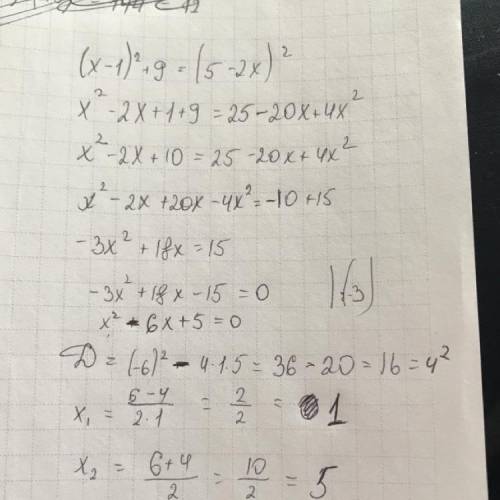 (x-1)²+9=(5-2x)²
x²-2x+1+9=25-20x+4x²
x²-2x+10=25-20x+4x²
x²-2x+20x-4x²=-10+15
-3x²+18x=15
-3x²+18x-15=0 |:(-3)
x²-6x+5=0
D=(-6)²-4·1·5=36-20=16=4²
x₁=(6-4)/(2·1)=2/2=1
x₂=(6+4)/2=10/2=5